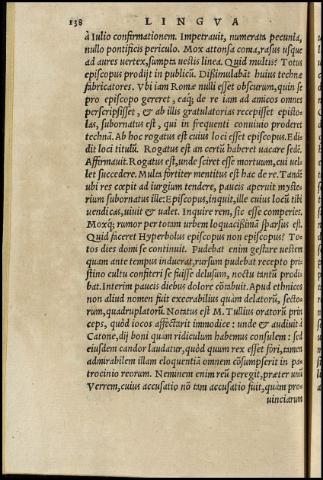 138 LINGVA
à Iulio confirmationem. Impetrauit, numeram pecunia,
nullo pontificis periculo. Mox attonsa coma, rasus usque
ad aures uertex, sumpta uestis linea. Quid multis? Totus
episcopus prodijt in publicũ. Dißimulabãt huius technæ
fabricatores. Vbi iam Romæ nulli esset obscurum, quin se
pro episcopo gereret, eaq; de re iam ad amicos omnes
perscripsisset, & ab illis gratulatorias recepisset episto-
las, subornatus est, qui in frequenti conuiuio proderet
technã. Ab hoc rogatus est cuius loci esset episcopus. Edi
dit loci titulũ. Rogatus est an certũ haberet uacare sedẽ.
Affirmauit. Rogatus est, unde sciret esse mortuum, cui uel
let succedere. Multa fortiter mentitus est hac de re. Tandẽ
ubi res cœpit ad iurgium tendere, paucis aperuit myste-
rium subornatus ille: Episcopus, inquit, ille cuius locũ tibi
uendicas, uiuit & ualet. Inquire rem, sic esse comperies.
Moxq; rumor per totam urbem loquacißimã sparsus est.
Quid faceret Hyperbolus episcopus non episcopus? To-
tos dies domi se continuit. Pudebat enim gestare uestem
quam ante tempus induerat, rursum pudebat recepto pri-
stino cultu confiteri se fuisse delusum, noctu tantũ prodi-
bat. Interim paucis diebus dolore cõtabuit. Apud ethnicos
non aliud nomen fuit execrabilius quàm delatorũ, secto-
rum, quadruplatorũ. Notatus est M. Tullius oratorũ prin
ceps, quòd iocos affectarit immodice: unde & audiuit à
Catone, dij boni quàm ridiculum habemus consulem: sed
eiusdem candor laudatur, quòd quum rex esset fori, tamen
admirabilem illam eloquentiã omnem cõsumpserit in pa-
trocinio reorum. Neminem enim reũ peregit, præter unũ
Verrem, cuius accusatio nõ tam accusatio fuit, quàm pro-
uinciarum